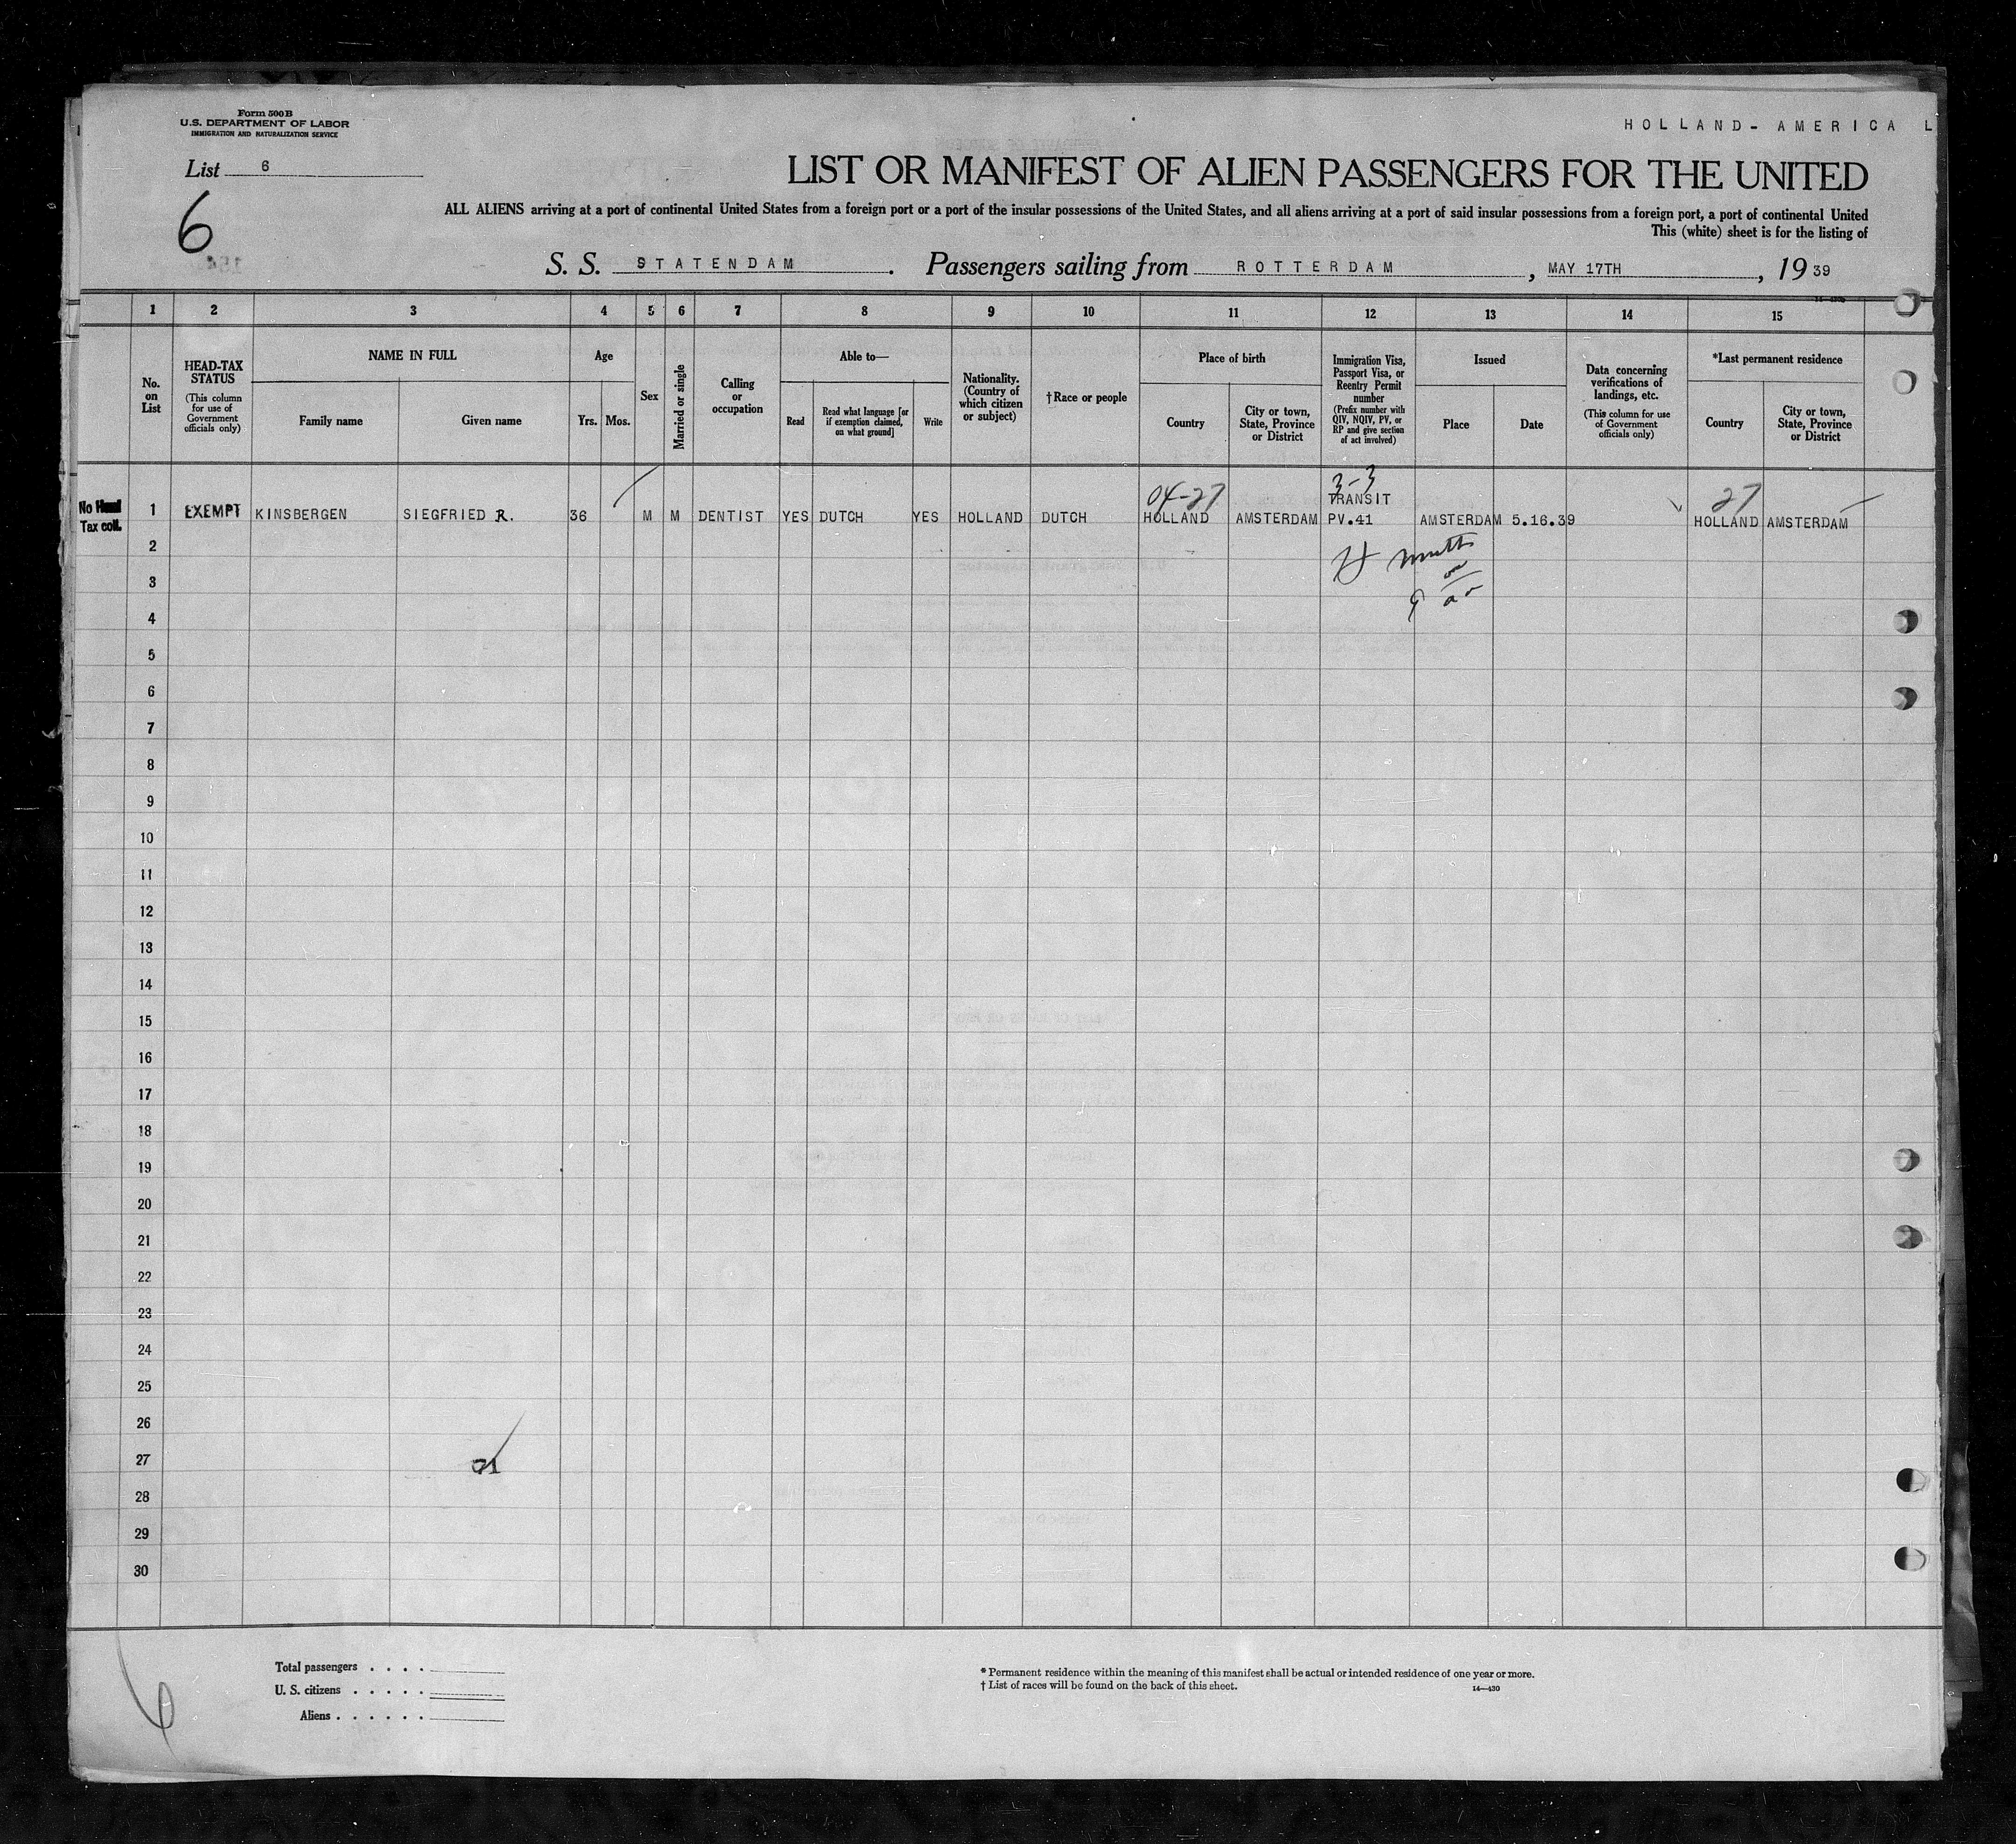 Form 500B
U.S. DEPARTMENT OF LABOR
IMMIGRATION AND NATURALIZATION SERVICE
HOLLAND- AMERICA L
List 6
6
LIST OR MANIFEST OF ALIEN PASSENGERS FOR THE UNITED
ALL ALIENS arriving at a port of continental United States from a foreign port or a port of the insular possessions of the United States, and all aliens arriving at a port of said insular possessions from a foreign port, a port of continental United
This (white) sheet is for the listing of
S. S. STATENDAM. Passengers sailing from ROTTERDAM, MAY 17TH, 19 39
1 2 3 4 5 6 7 8 9 10 11 12 13 14 15
No. on List
HEAD-TAX STATUS
(This column for use of Government officials only)
NAME IN FULL
Family name
Given name
Age
Yrs. Mos.
Sex
Married or single
Calling or occupation
Able to—
Read
Read what language [or if exemption claimed, on what ground]
Write
Nationality. (Country of which citizen or subject)
†Race or people
Place of birth
Country
City or town, State, Province or District
Immigration Visa, Passport Visa, or Reentry Permit number
(Prefix number with QIV, NQIV, PV, or RP and give section of act involved)
Issued
Place
Date
Data concerning verifications of landings, etc.
(This column for use of Government officials only)
*Last permanent residence
Country
City or town, State, Province or District
3-3
04-27 TRANSIT 27
No Head Tax coll.
1 EXEMPT KINSBERGEN SIEGFRIED R. 36 M M DENTIST YES DUTCH YES HOLLAND DUTCH HOLLAND AMSTERDAM PV.41 AMSTERDAM 5.16.39 HOLLAND AMSTERDAM
2
3
4
5
6
7
8
9
10
11
12
13
14
15
16
17
18
19
20
21
22
23
24
25
26
27
28
29
30
6
Total passengers . . . .
U. S. citizens . . . . .
Aliens . . . . . .
* Permanent residence within the meaning of this manifest shall be actual or intended residence of one year or more.
† List of races will be found on the back of this sheet.
14—430